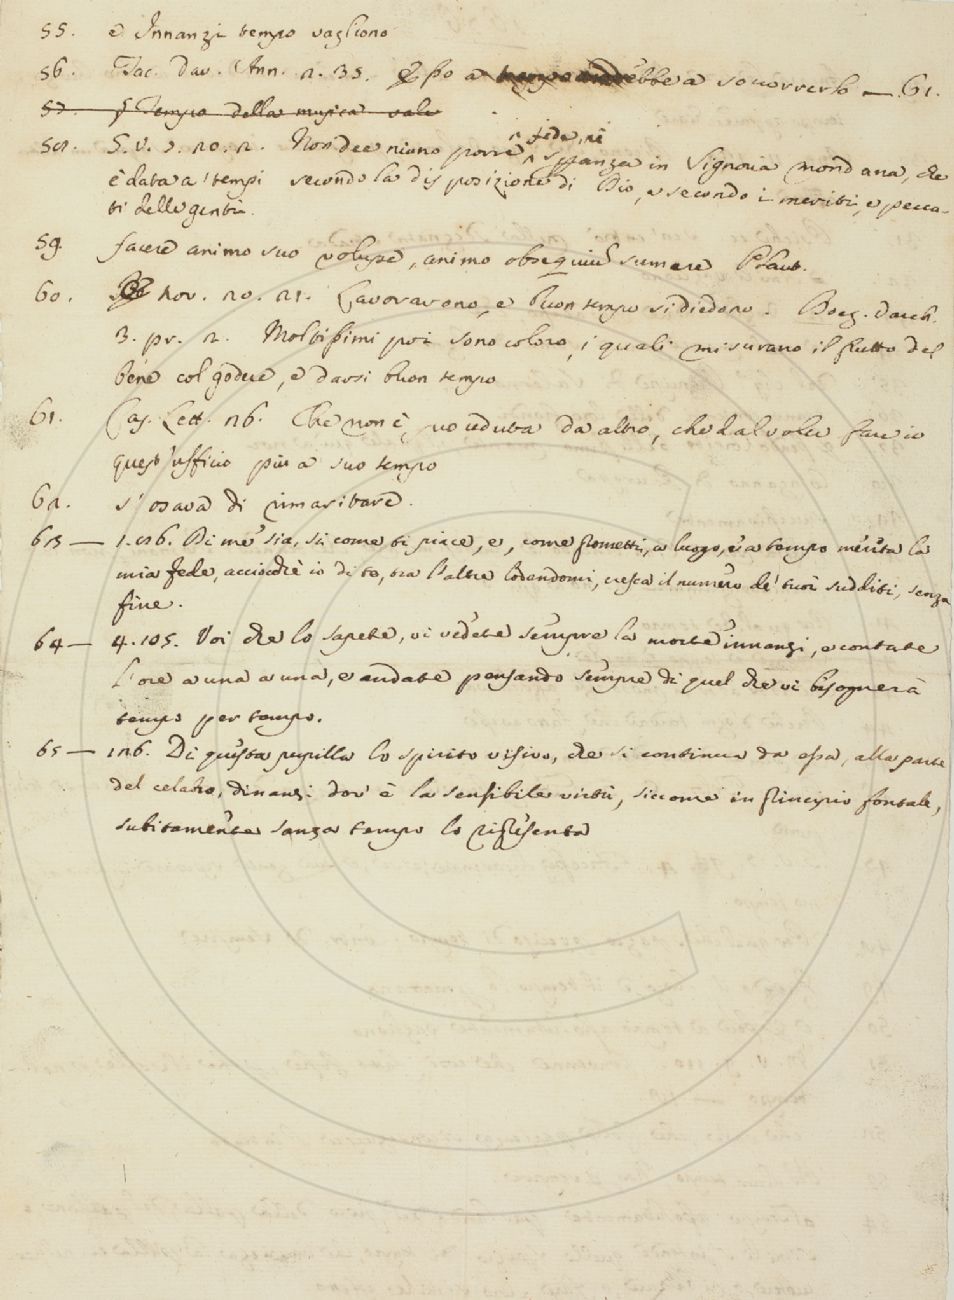 55. e Innanzi tempo vagliono
56. Tac. Dav. Ann. 2. 35. esso a tempo andrebbe a soccorrerlo — 61.
57. § Tempo della musica vale
58. G. V. 7. 20. 2. Non dee niuno porre nè fede, nè
speranza in Signoria mondana, che
è data a' tempi secondo la disposizione di Dio, e secondo i meriti, e pecca-
ti delle genti.
59 facere animo suo volupe, animo obsequium sumere Plaut.
60. nov. 20. 21. Lavoravano, e buon tempo si diedono. Boez. Varch.
3. pr. 2. Moltissimi poi sono coloro, i quali misurano il frutto del
bene col godere, e darsi buon tempo
61. Cas. Lett. 26. Che non è, proceduta da altro, che dal voler fare io
quest' ufficio più a suo tempo
62. s' osava di rimaritare.
63 — 1.26. Di me sia, sì come ti piace, e, come prometti, a luogo, e a tempo merita la
mia fede, acciocchè io di te, tra l'altre lodandomi, cresca il numero de' tuoi sudditi, senza
fine.
64 — 4. 105. Voi che lo sapete, vi vedete sempre la morte innanzi, e contate
l' ore a una a una, e andate pensando sempre di quel che vi bisognerà
tempo per tempo.
65 — 126. Di questa pupilla lo spirito visivo, che si continua da essa, alla parte
del celabro, dinanzi dov' è la sensibile virtù, siccome in principio fontale,
subitamente sanza tempo lo ripresenta